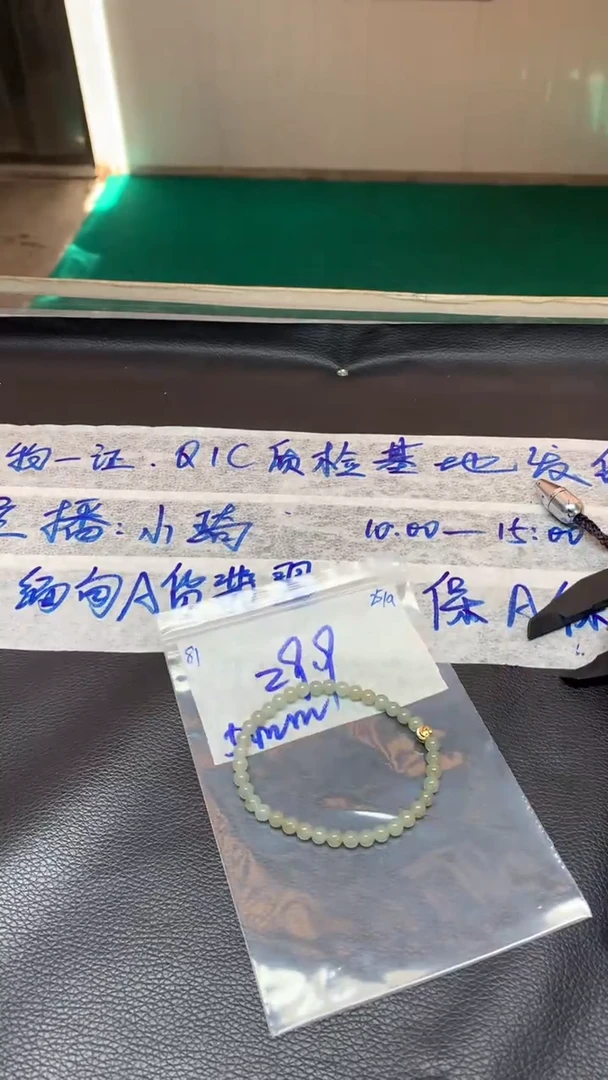 物一证.QIC质检基地发
播:小琦 10.00—15:00
缅甸A货翡翠 保A
81
299
5mm